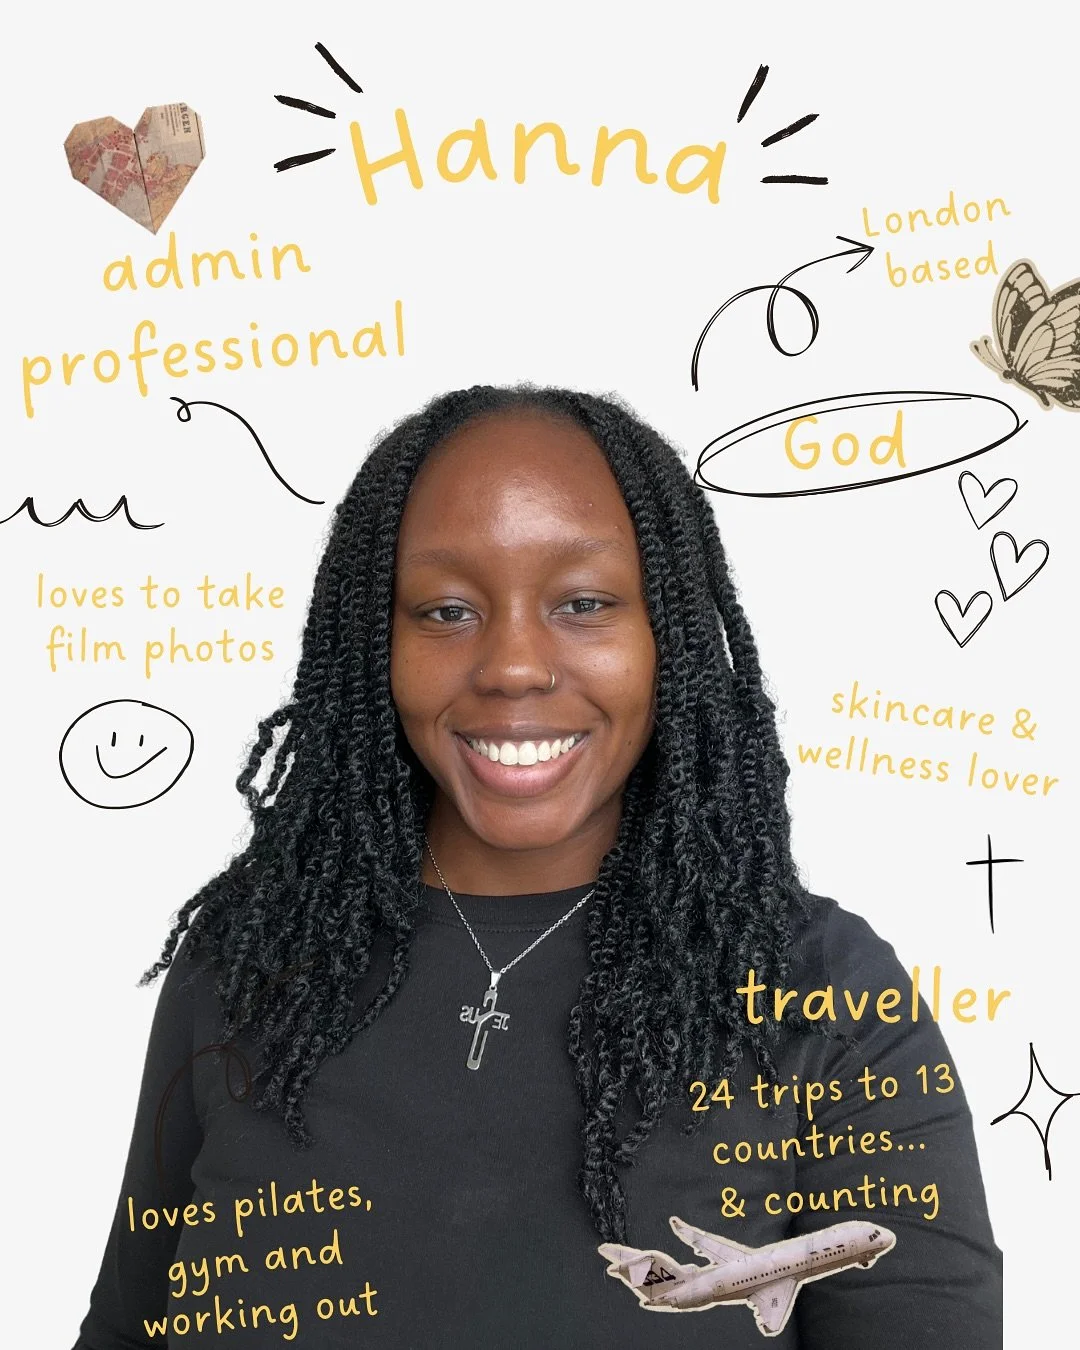 Hanna
admin
professional
London
based
God
loves to take
film photos
skincare &
wellness lover
traveller
24 trips to 13
countries...
& counting
loves pilates,
gym and
working out